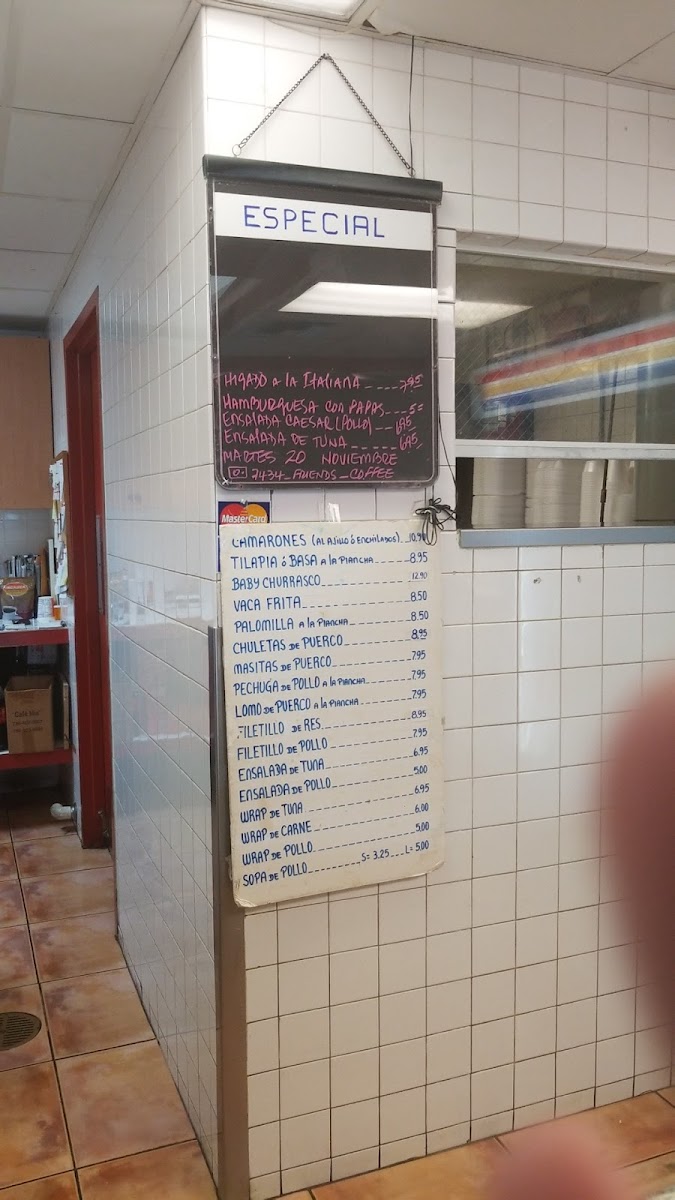 ESPECIAL
HIGADO A LA ITALIANA ---- 7.95
HAMBURGUESA CON PAPAS --- 5=
ENSALADA CAESAR (POLLO) -- 6.95
ENSALADA DE TUNA ------ 6.95
MARTES 20 NOVIEMBRE
COFFEE
MasterCard
CAMARONES (AL AJILLO ó ENCHILADOS) 10.90
TILAPIA ó BASA A la PlANCHA 8.95
BABY CHURRASCO 12.90
VACA FRITA 8.50
PALOMILLA A la PlANCHA 8.50
CHULETAS DE PUERCO 8.95
MASITAS DE PUERCO 7.95
PECHUGA DE POLLO A la PlANCHA 7.95
LOMO DE PUERCO A la PlANCHA 7.95
FILETILLO DE RES 8.95
FILETILLO DE POLLO 7.95
ENSALADA DE TUNA 6.95
ENSALADA DE POLLO 5.00
WRAP DE TUNA 6.95
WRAP DE CARNE 6.00
WRAP DE POLLO 5.00
SOPA DE POLLO S= 3.25 L= 5.00